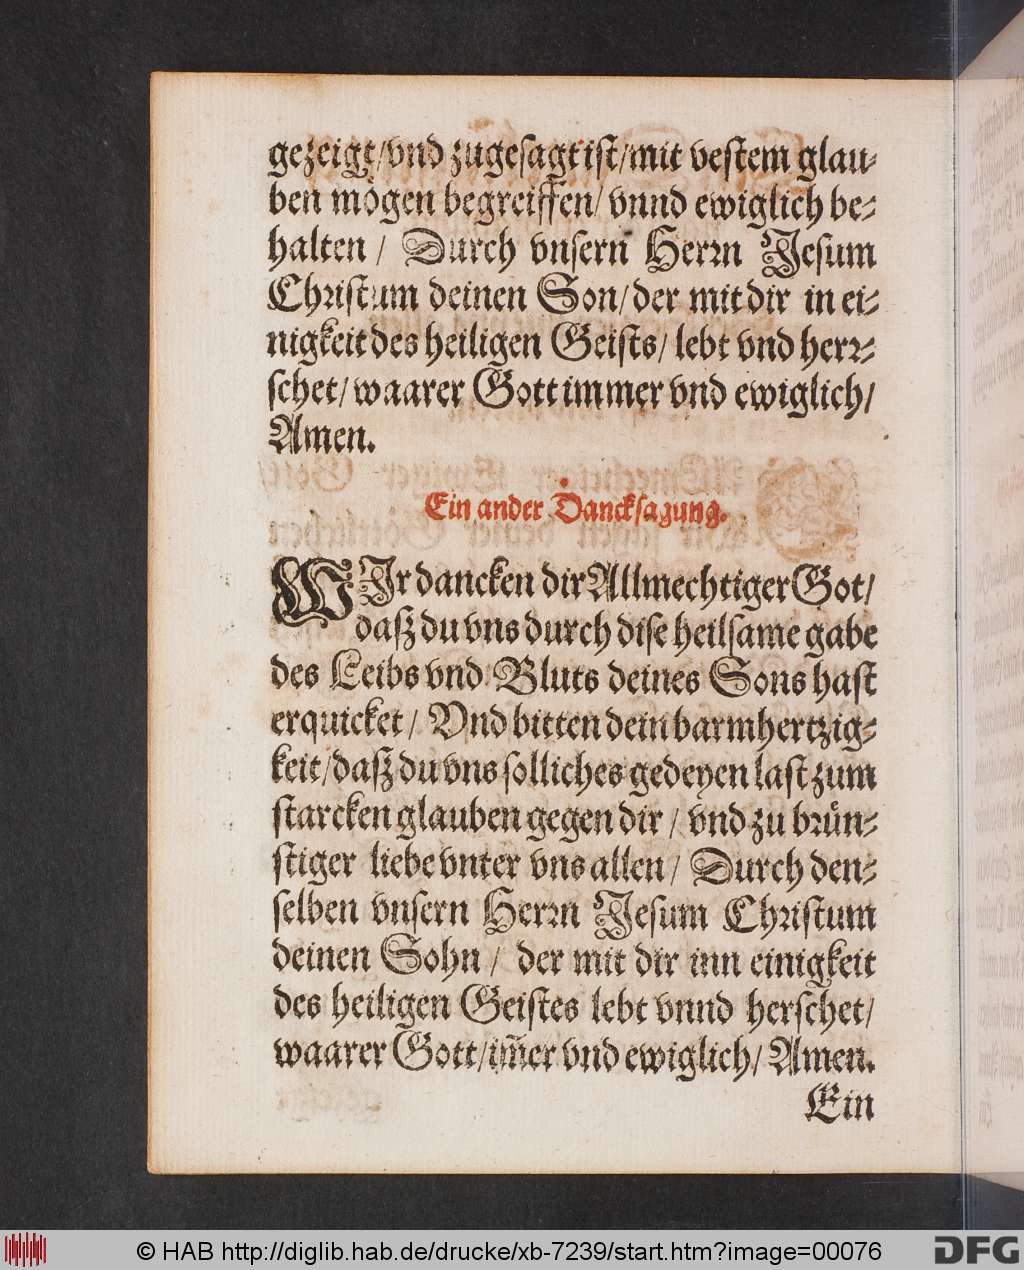 gezeigt/vnd zugesagt ist/mit vestem glau-
ben mögen begreiffen/ vnnd ewiglich be-
halten / Durch vnsern Herrn Jesum
Christum deinen Son/der mit dir in ei-
nigkeit des heiligen Geists/ lebt vnd herr-
schet/waarer Gott immer vnd ewiglich/
Amen.
Ein ander Dancksagung.
WIr dancken dir Allmechtiger Got/
daß du vns durch dise heilsame gabe
des Leibs vnd Bluts deines Sons hast
erquicket / Vnd bitten dein barmhertzig-
keit/daß du vns solliches gedeyen last zum
starcken glauben gegen dir / vnd zu brün-
stiger liebe vnter vns allen / Durch den-
selben vnsern Herrn Jesum Christum
deinen Sohn / der mit dir inn einigkeit
des heiligen Geistes lebt vnnd herschet/
waarer Gott/im̃er vnd ewiglich/ Amen.
Ein
© HAB http://diglib.hab.de/drucke/xb-7239/start.htm?image=00076
DFG